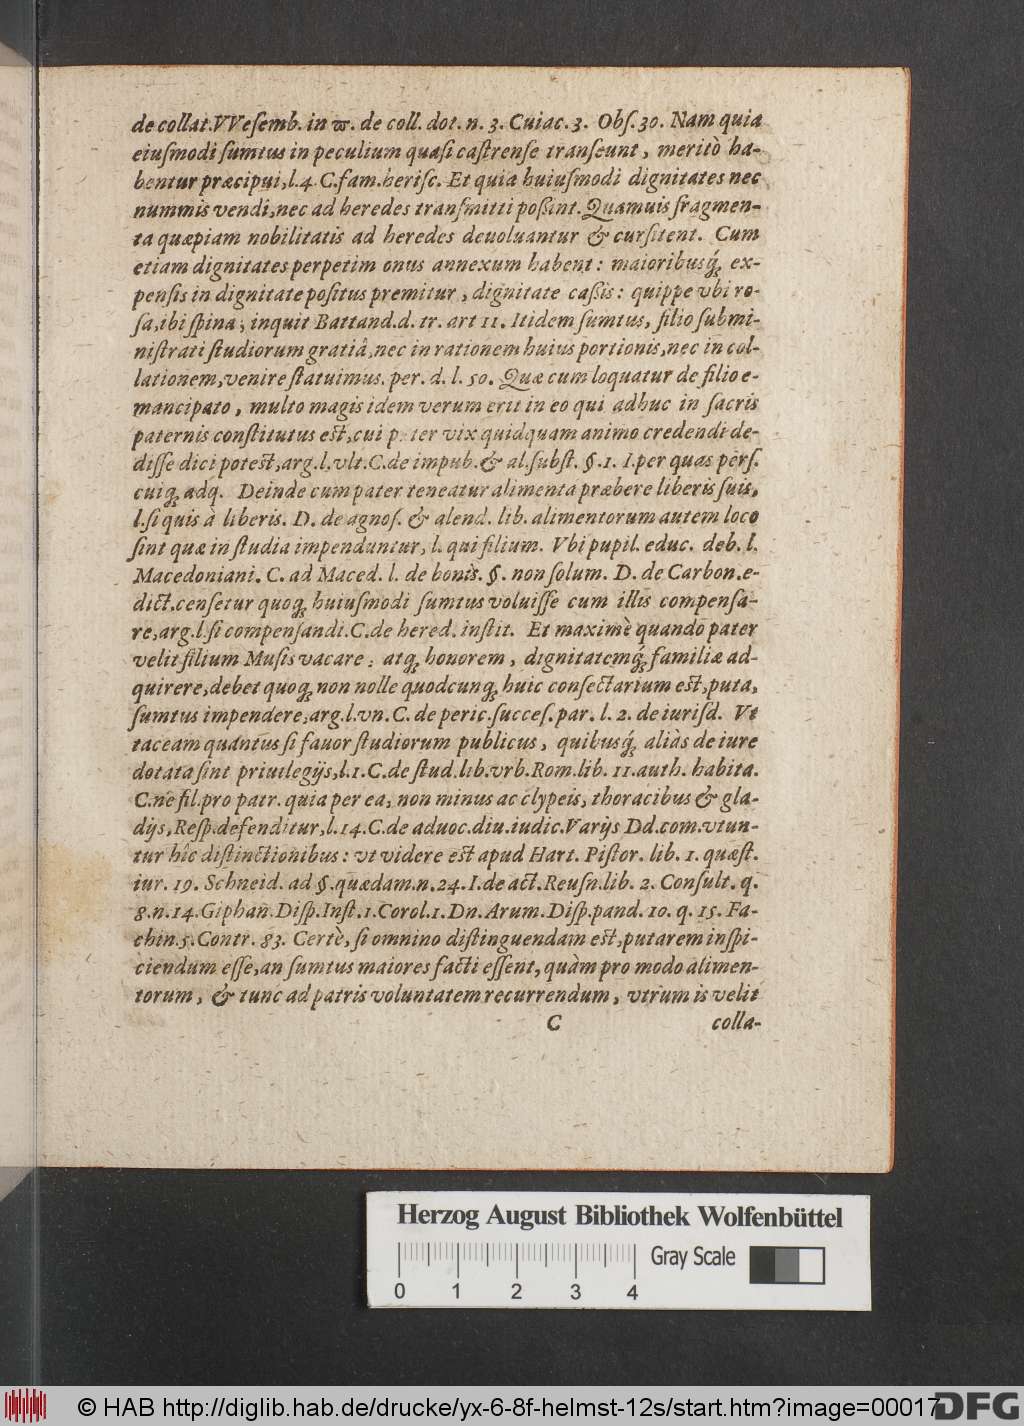 de collat. VVesemb. in ϖ. de coll. dot. n. 3. Cuiac. 3. Obs. 30. Nam quia
eiusmodi sumtus in peculium quasi castrense transeunt, meritò ha-
bentur præcipui, l. 4. C. fam. herisc. Et quia huiusmodi dignitates nec
nummis vendi, nec ad heredes transmitti poßint. Quamuis fragmen-
ta quæpiam nobilitatis ad heredes deuoluantur & cursitent. Cum
etiam dignitates perpetim onus annexum habent: maioribusq́; ex-
pensis in dignitate positus premitur, dignitate caßis: quippe vbi ro-
sa, ibi spina, inquit Battand. d. tr. art 11. Itidem sumtus, filio submi-
nistrati studiorum gratiâ, nec in rationem huius portionis, nec in col-
lationem, venire statuimus. per. d. l. 50. Quæ cum loquatur de filio e-
mancipato, multo magis idem verum erit in eo qui adhuc in sacris
paternis constitutus est, cui pater vix quidquam animo credendi de-
disse dici potest, arg. l. vlt. C. de impub. & al. subst. §. 1. I. per quas pers.
cuiq; adq. Deinde cum pater teneatur alimenta præbere liberis suis,
l. si quis à liberis. D. de agnos. & alend. lib. alimentorum autem loco
sint quæ in studia impenduntur, l. qui filium. Vbi pupil. educ. deb. l.
Macedoniani. C. ad Maced. l. de bonis. §. non solum. D. de Carbon. e-
dict. censetur quoq; huiusmodi sumtus voluisse cum illis compensa-
re, arg. l. si compensandi. C. de hered. instit. Et maximè quando pater
velit filium Musis vacare, atq; honorem, dignitatemq́; familiæ ad-
quirere, debet quoq; non nolle quodcunq; huic consectarium est, puta,
sumtus impendere, arg. l. vn. C. de peric. succes. par. l. 2. de iurisd. Vt
taceam quantus si fauor studiorum publicus, quibusq́; aliàs de iure
dotata sint priuilegijs, l. 1. C. de stud. lib. vrb. Rom. lib. 11. auth. habita.
C. ne fil. pro patr. quia per ea, non minus ac clypeis, thoracibus & gla-
dijs, Resp. defenditur, l. 14. C. de aduoc. diu. iudic. Varijs Dd. com. vtun-
tur hîc distinctionibus: vt videre est apud Hart. Pistor. lib. 1. quæst.
iur. 19. Schneid. ad §. quædam. n. 24. I. de act. Reusn. lib. 2. Consult. q.
8. n. 14. Giphan. Disp. Inst. 1. Corol. 1. Dn. Arum. Disp. pand. 10. q. 15. Fa-
chin. 5. Contr. 83. Certè, si omnino distinguendam est, putarem inspi-
ciendum esse, an sumtus maiores facti essent, quàm pro modo alimen-
torum, & tunc ad patris voluntatem recurrendum, vtrum is velit
C colla-
Herzog August Bibliothek Wolfenbüttel
Gray Scale
0 1 2 3 4
© HAB http://diglib.hab.de/drucke/yx-6-8f-helmst-12s/start.htm?image=00017
DFG